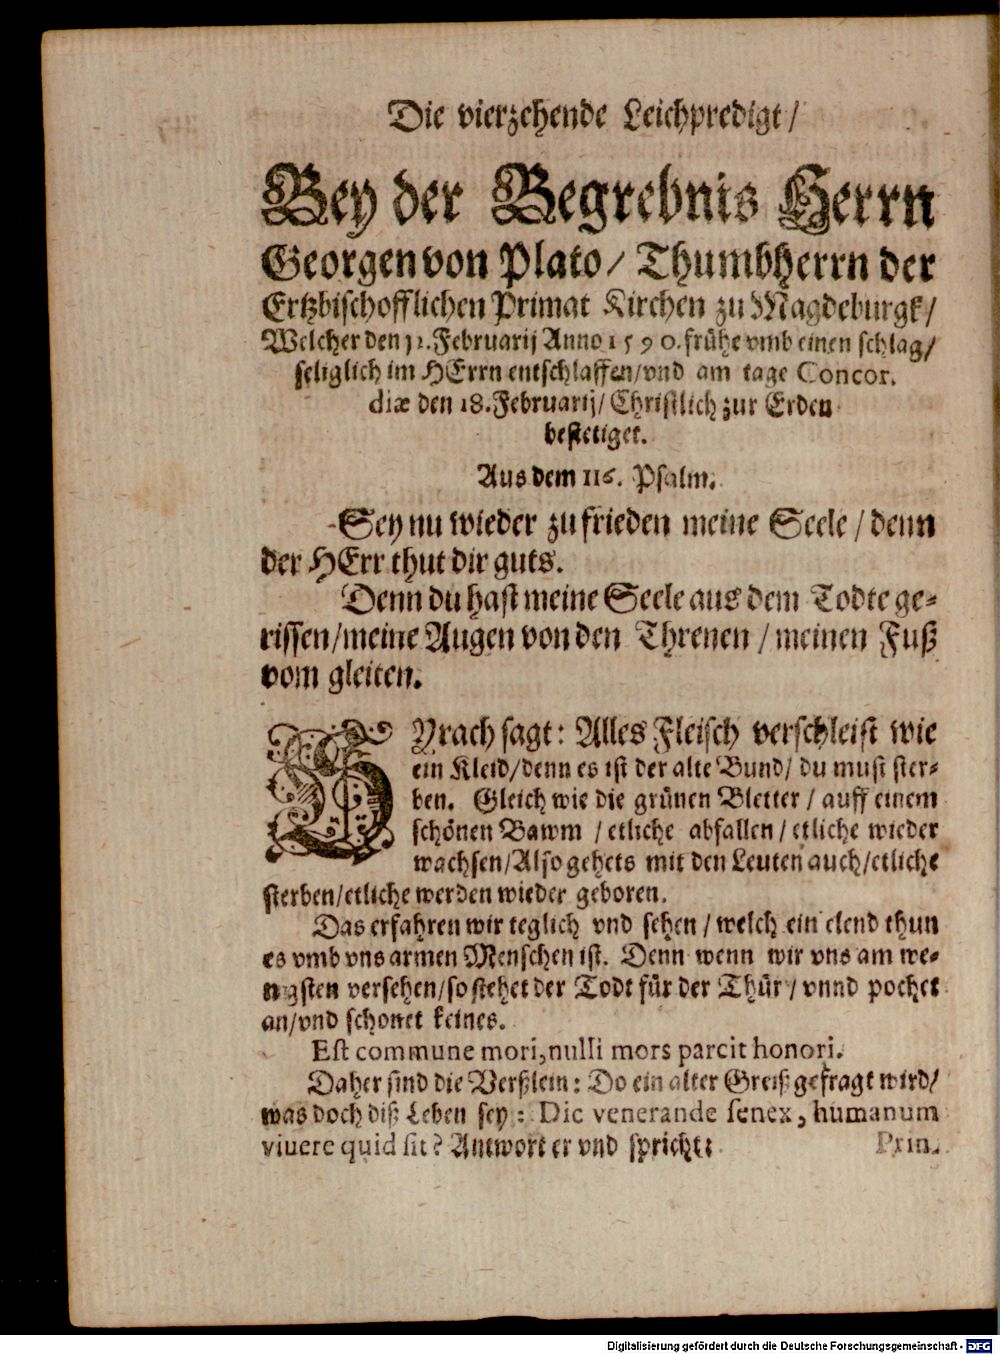 Die vierzehende Leichpredigt/
Bey der Begrebnis Herrn
Georgen von Plato/ Thumbherrn der
Ertzbischofflichen Primat Kirchen zu Magdeburgk/
Welcher den 11. Februarij Anno 1590. frühe vmb einen schlag/
seliglich im HErrn entschlaffen/vnd am tage Concor.
diæ den 18. Februarij/ Christlich zur Erden
bestetiget.
Aus dem 116. Psalm.
Sey nu wieder zu frieden meine Seele / denn
der HErr thut dir guts.
Denn du hast meine Seele aus dem Todte ge-
rissen/meine Augen von den Threnen / meinen Fuß
vom gleiten.
SYrach sagt: Alles Fleisch verschleist wie
ein Kleid/denn es ist der alte Bund/ du must ster-
ben. Gleich wie die grünen Bletter / auff einem
schönen Bawm / etliche abfallen / etliche wieder
wachsen/Also gehets mit den Leuten auch/etliche
sterben/etliche werden wieder geboren.
Das erfahren wir teglich vnd sehen / welch ein elend thun
es vmb vns armen Menschen ist. Denn wenn wir vns am we-
nigsten versehen/so stehet der Todt für der Thür / vnnd pochet
an/vnd schonet keines.
Est commune mori, nulli mors parcit honori.
Daher sind die Verßlein: Do ein alter Greiß gefragt wird/
was doch diß Leben sey: Dic venerande senex, humanum
viuere quid sit? Antwort er vnd spricht:
Prin.
Digitalisierung gefördert durch die Deutsche Forschungsgemeinschaft - DFG